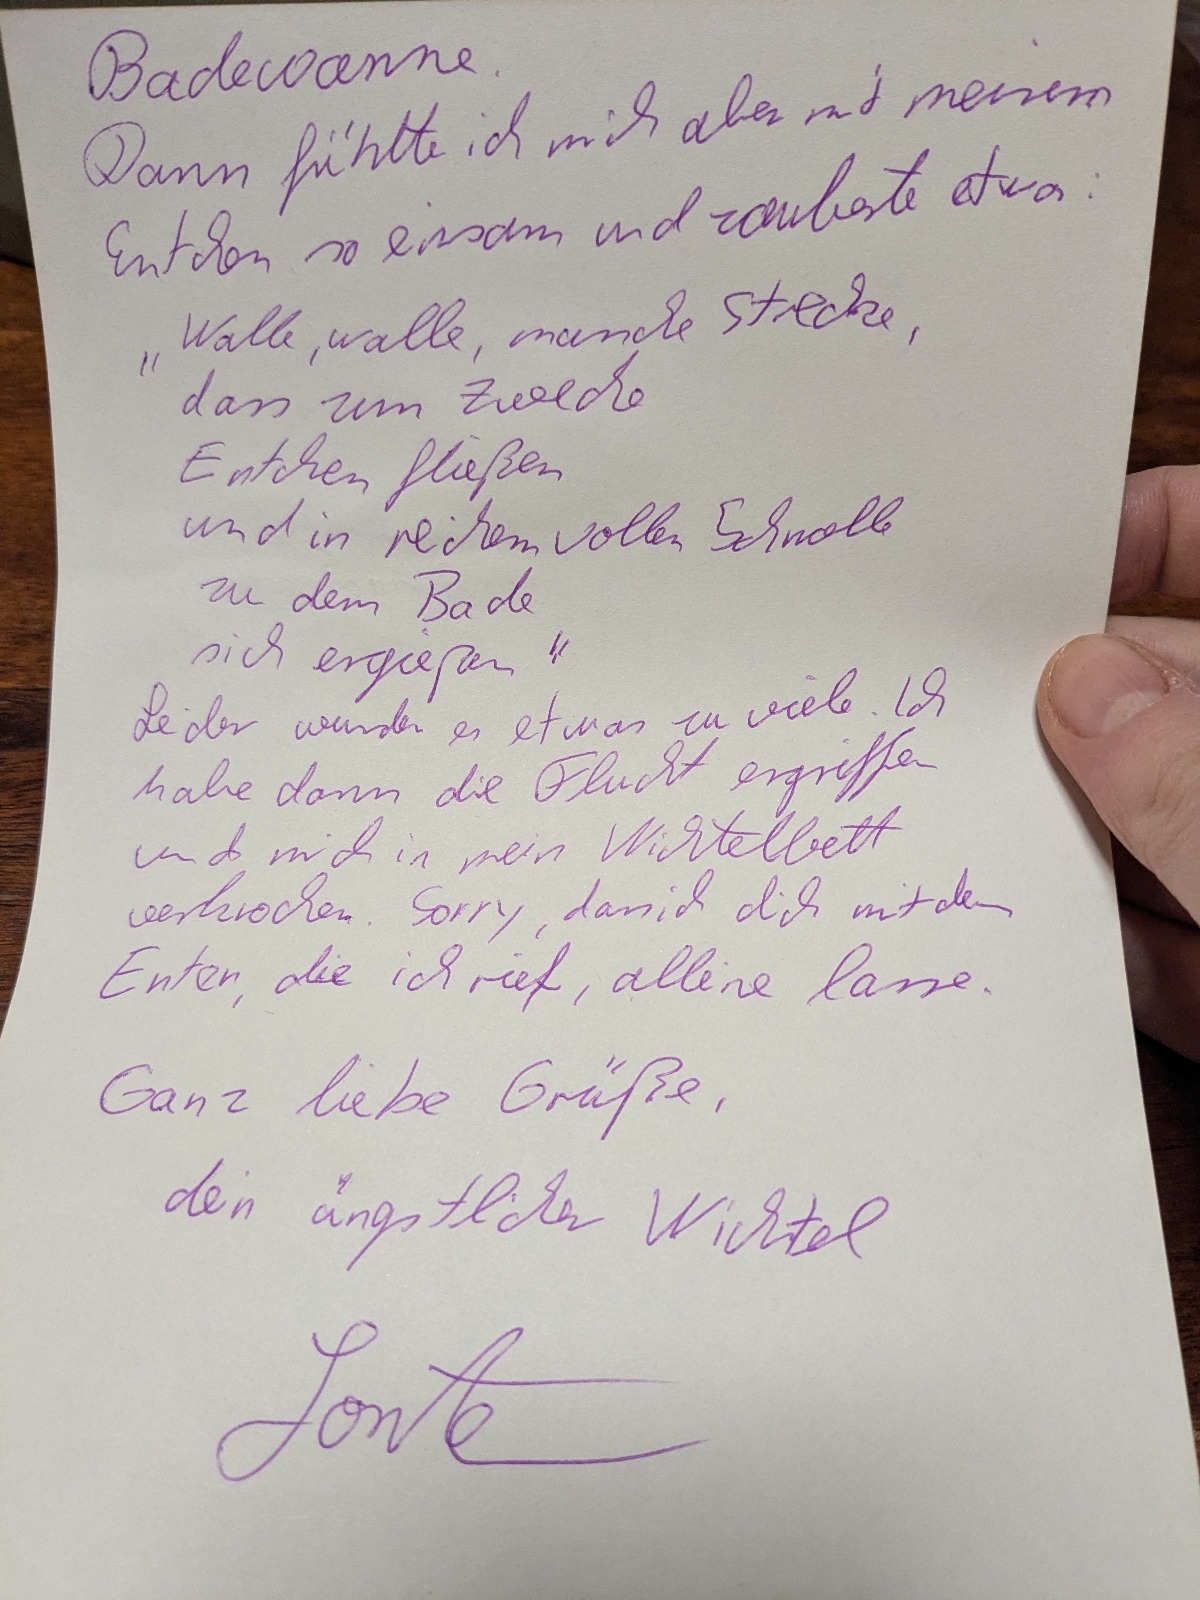 Badewanne.
Dann fühlte ich mich aber mit meinem
Entchen so einsam und zauberte etwas:
„Walle, walle, manche Strecke,
dass zum Zwecke
Entchen fließen
und in reichem vollen Schwalle
zu dem Bade
sich ergießen"
Leider wurden es etwas zu viele. Ich
habe dann die Flucht ergriffen
und mich in mein Wichtelbett
verkrochen. Sorry, dass ich dich mit den
Enten, die ich rief, alleine lasse.
Ganz liebe Grüße,
dein ängstlicher Wichtel